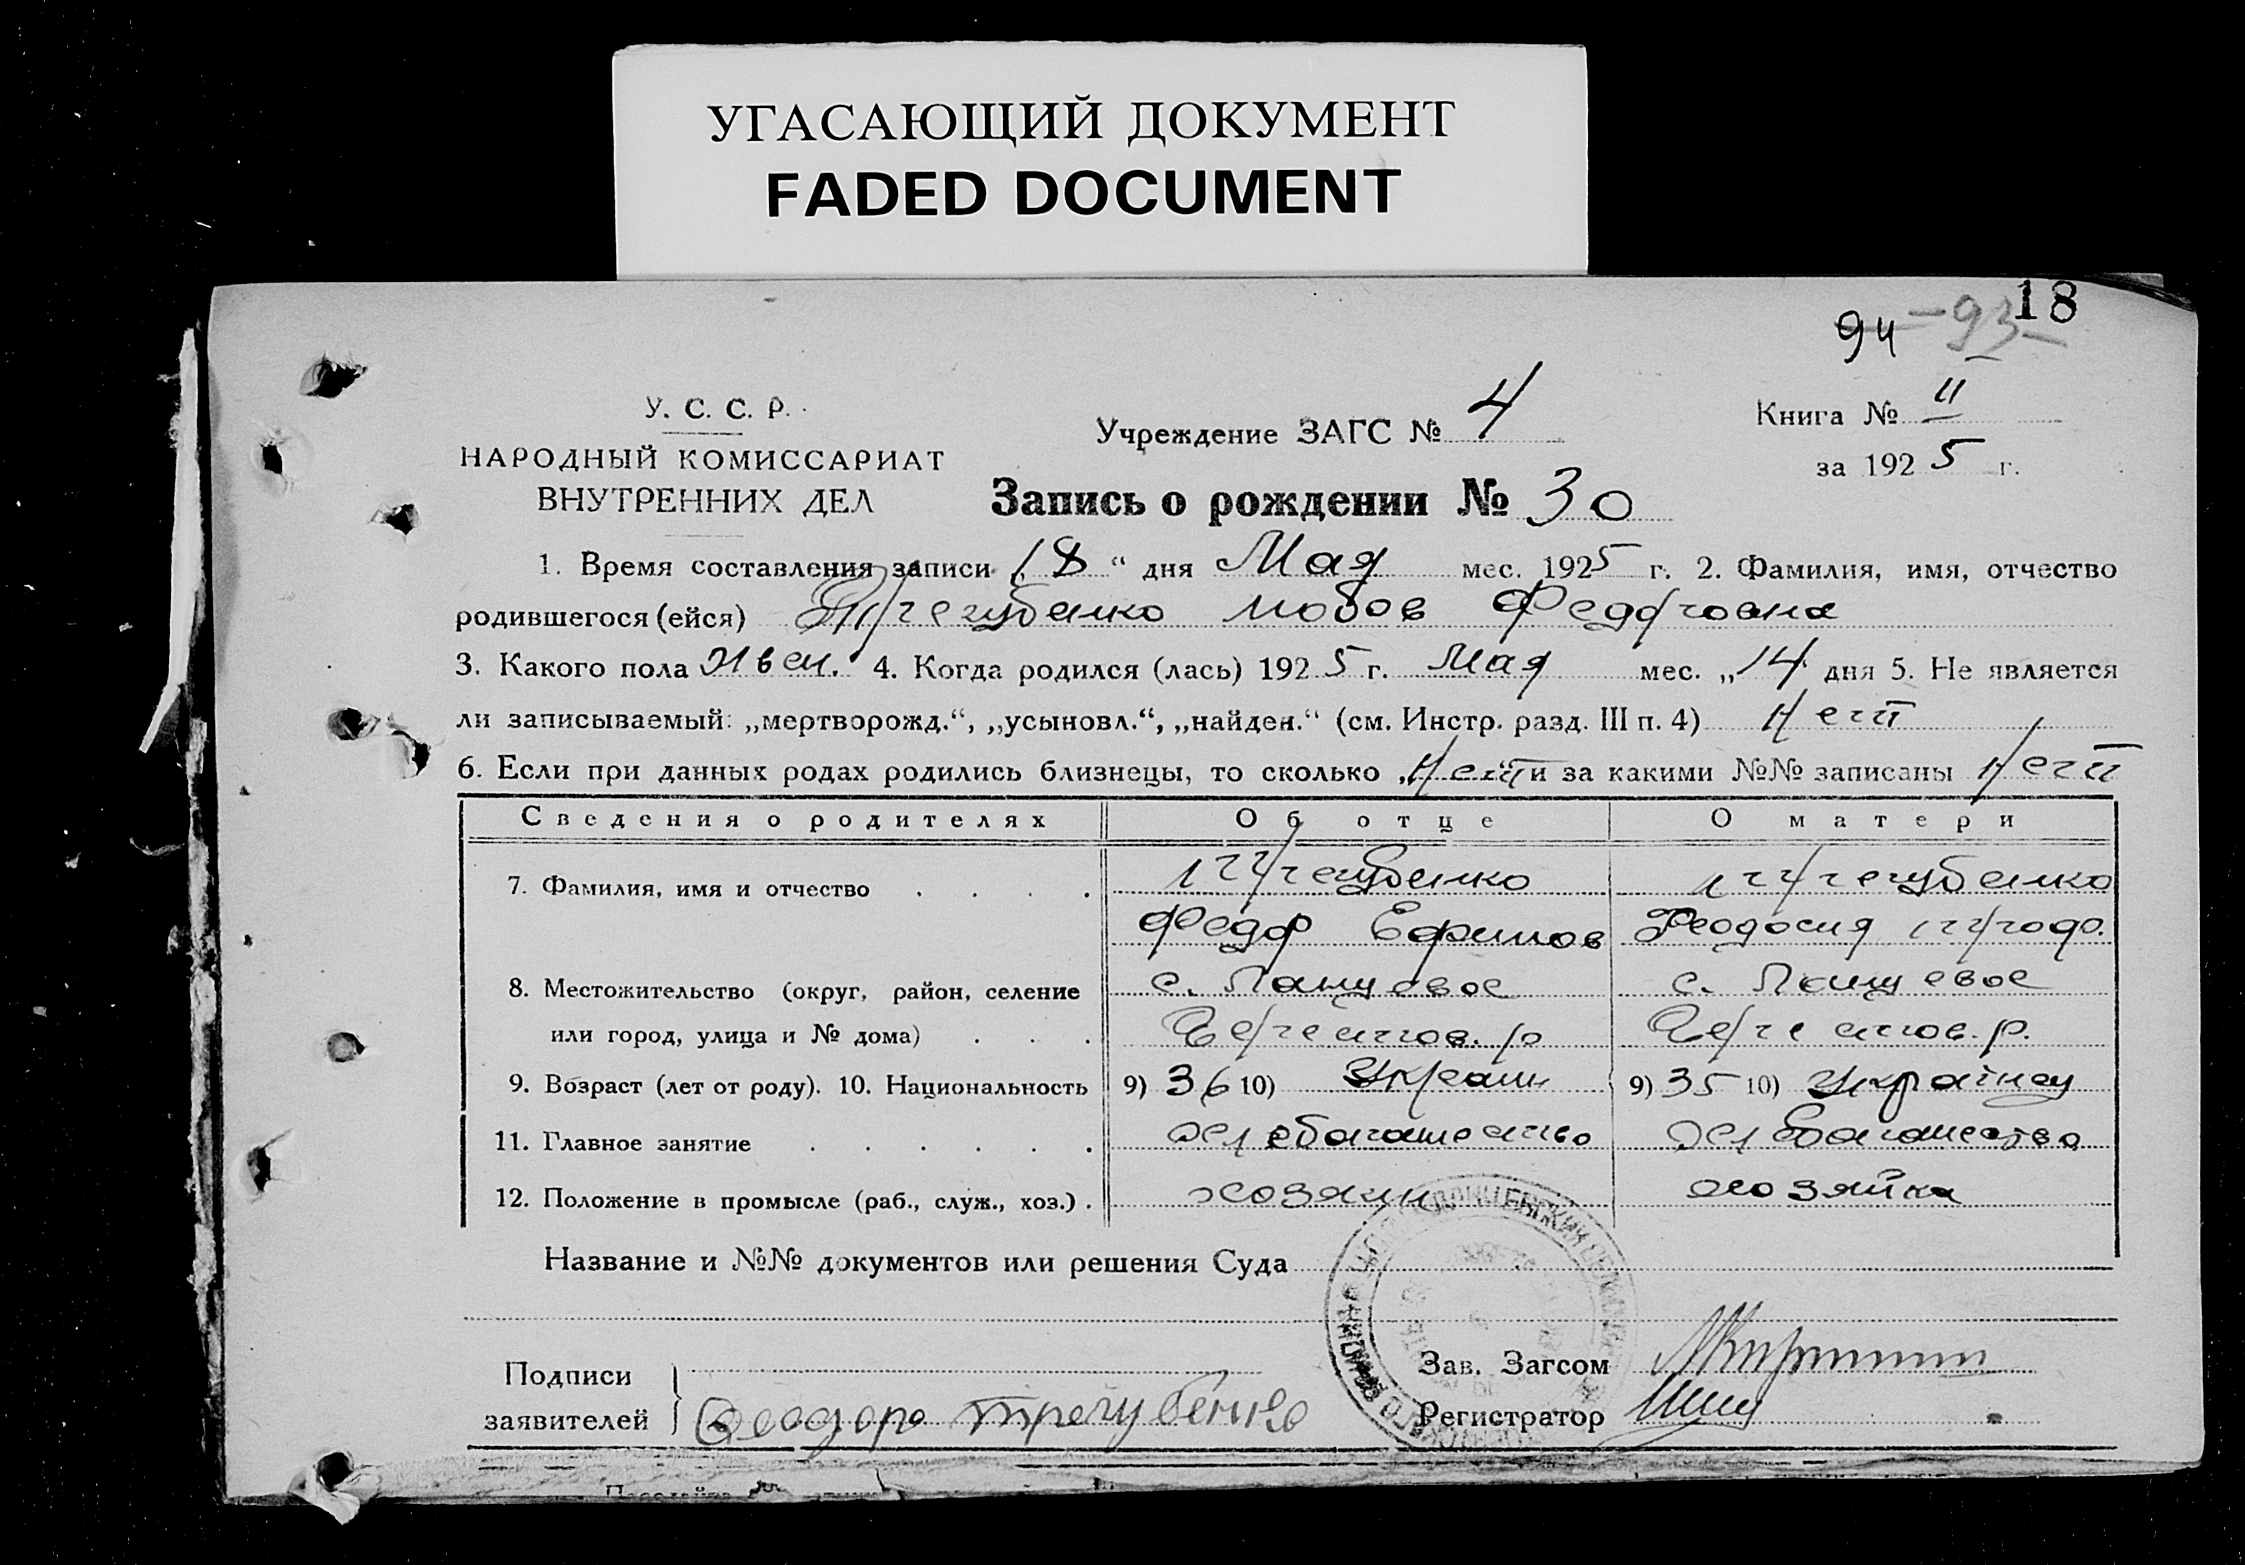 УГАСАЮЩИЙ ДОКУМЕНТ
FADED DOCUMENT
18
94 -93-
У. С. С. Р.
НАРОДНЫЙ КОМИССАРИАТ
ВНУТРЕННИХ ДЕЛ
Учреждение ЗАГС № 4
Книга № II
за 1925 г.
Запись о рождении № 30
1. Время составления записи „18“ дня Мая мес. 1925 г. 2. Фамилия, имя, отчество
родившегося (ейся) Трегубенко Любов Федоровна
3. Какого пола Жен. 4. Когда родился (лась) 1925 г. Мая мес. „14 дня 5. Не является
ли записываемый: „мертворожд.“, „усыновл.“, „найден.“ (см. Инстр. разд. III п. 4) Нет
6. Если при данных родах родились близнецы, то сколько „Нет“ и за какими №№ записаны Нет
Сведения о родителях Об отце О матери
7. Фамилия, имя и отчество Трегубенко Трегубенко
Федор Ефимов Феодосия Трофо.
8. Местожительство (округ, район, селение с. с.
или город, улица и № дома)
9. Возраст (лет от роду). 10. Национальность 9) 36 10) Украин 9) 35 10)
11. Главное занятие хлебопашество хлебопашество
12. Положение в промысле (раб., служ., хоз.) хозяин хозяйка
Название и №№ документов или решения Суда
Подписи
заявителей Феодора Трегубенко
Зав. Загсом
Регистратор